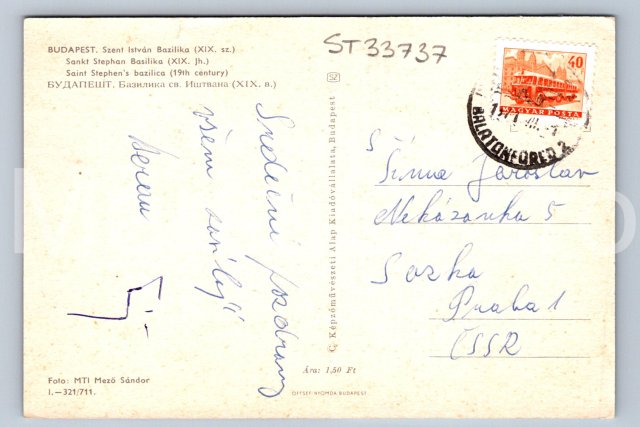 BUDAPEST. Szent István Bazilika (XIX. sz.)
Sankt Stephan Basilika (XIX. Jh.)
Saint Stephen's bazilica (19th century)
БУДАПЕШТ. Базилика св. Иштвана (XIX. в.)
ST33737
40
MAGYAR POSTA
BALATONFÜRED 2
SZ
Srdečné pozdravy
všem
Šíma Jaroslav
Nekázanka 5
Sazka
Praha 1
ČSSR
© Képzőművészeti Alap Kiadóvállalata, Budapest
Ára: 1,50 Ft
Foto: MTI Mező Sándor
I.—321/711.
OFFSET-NYOMDA BUDAPEST